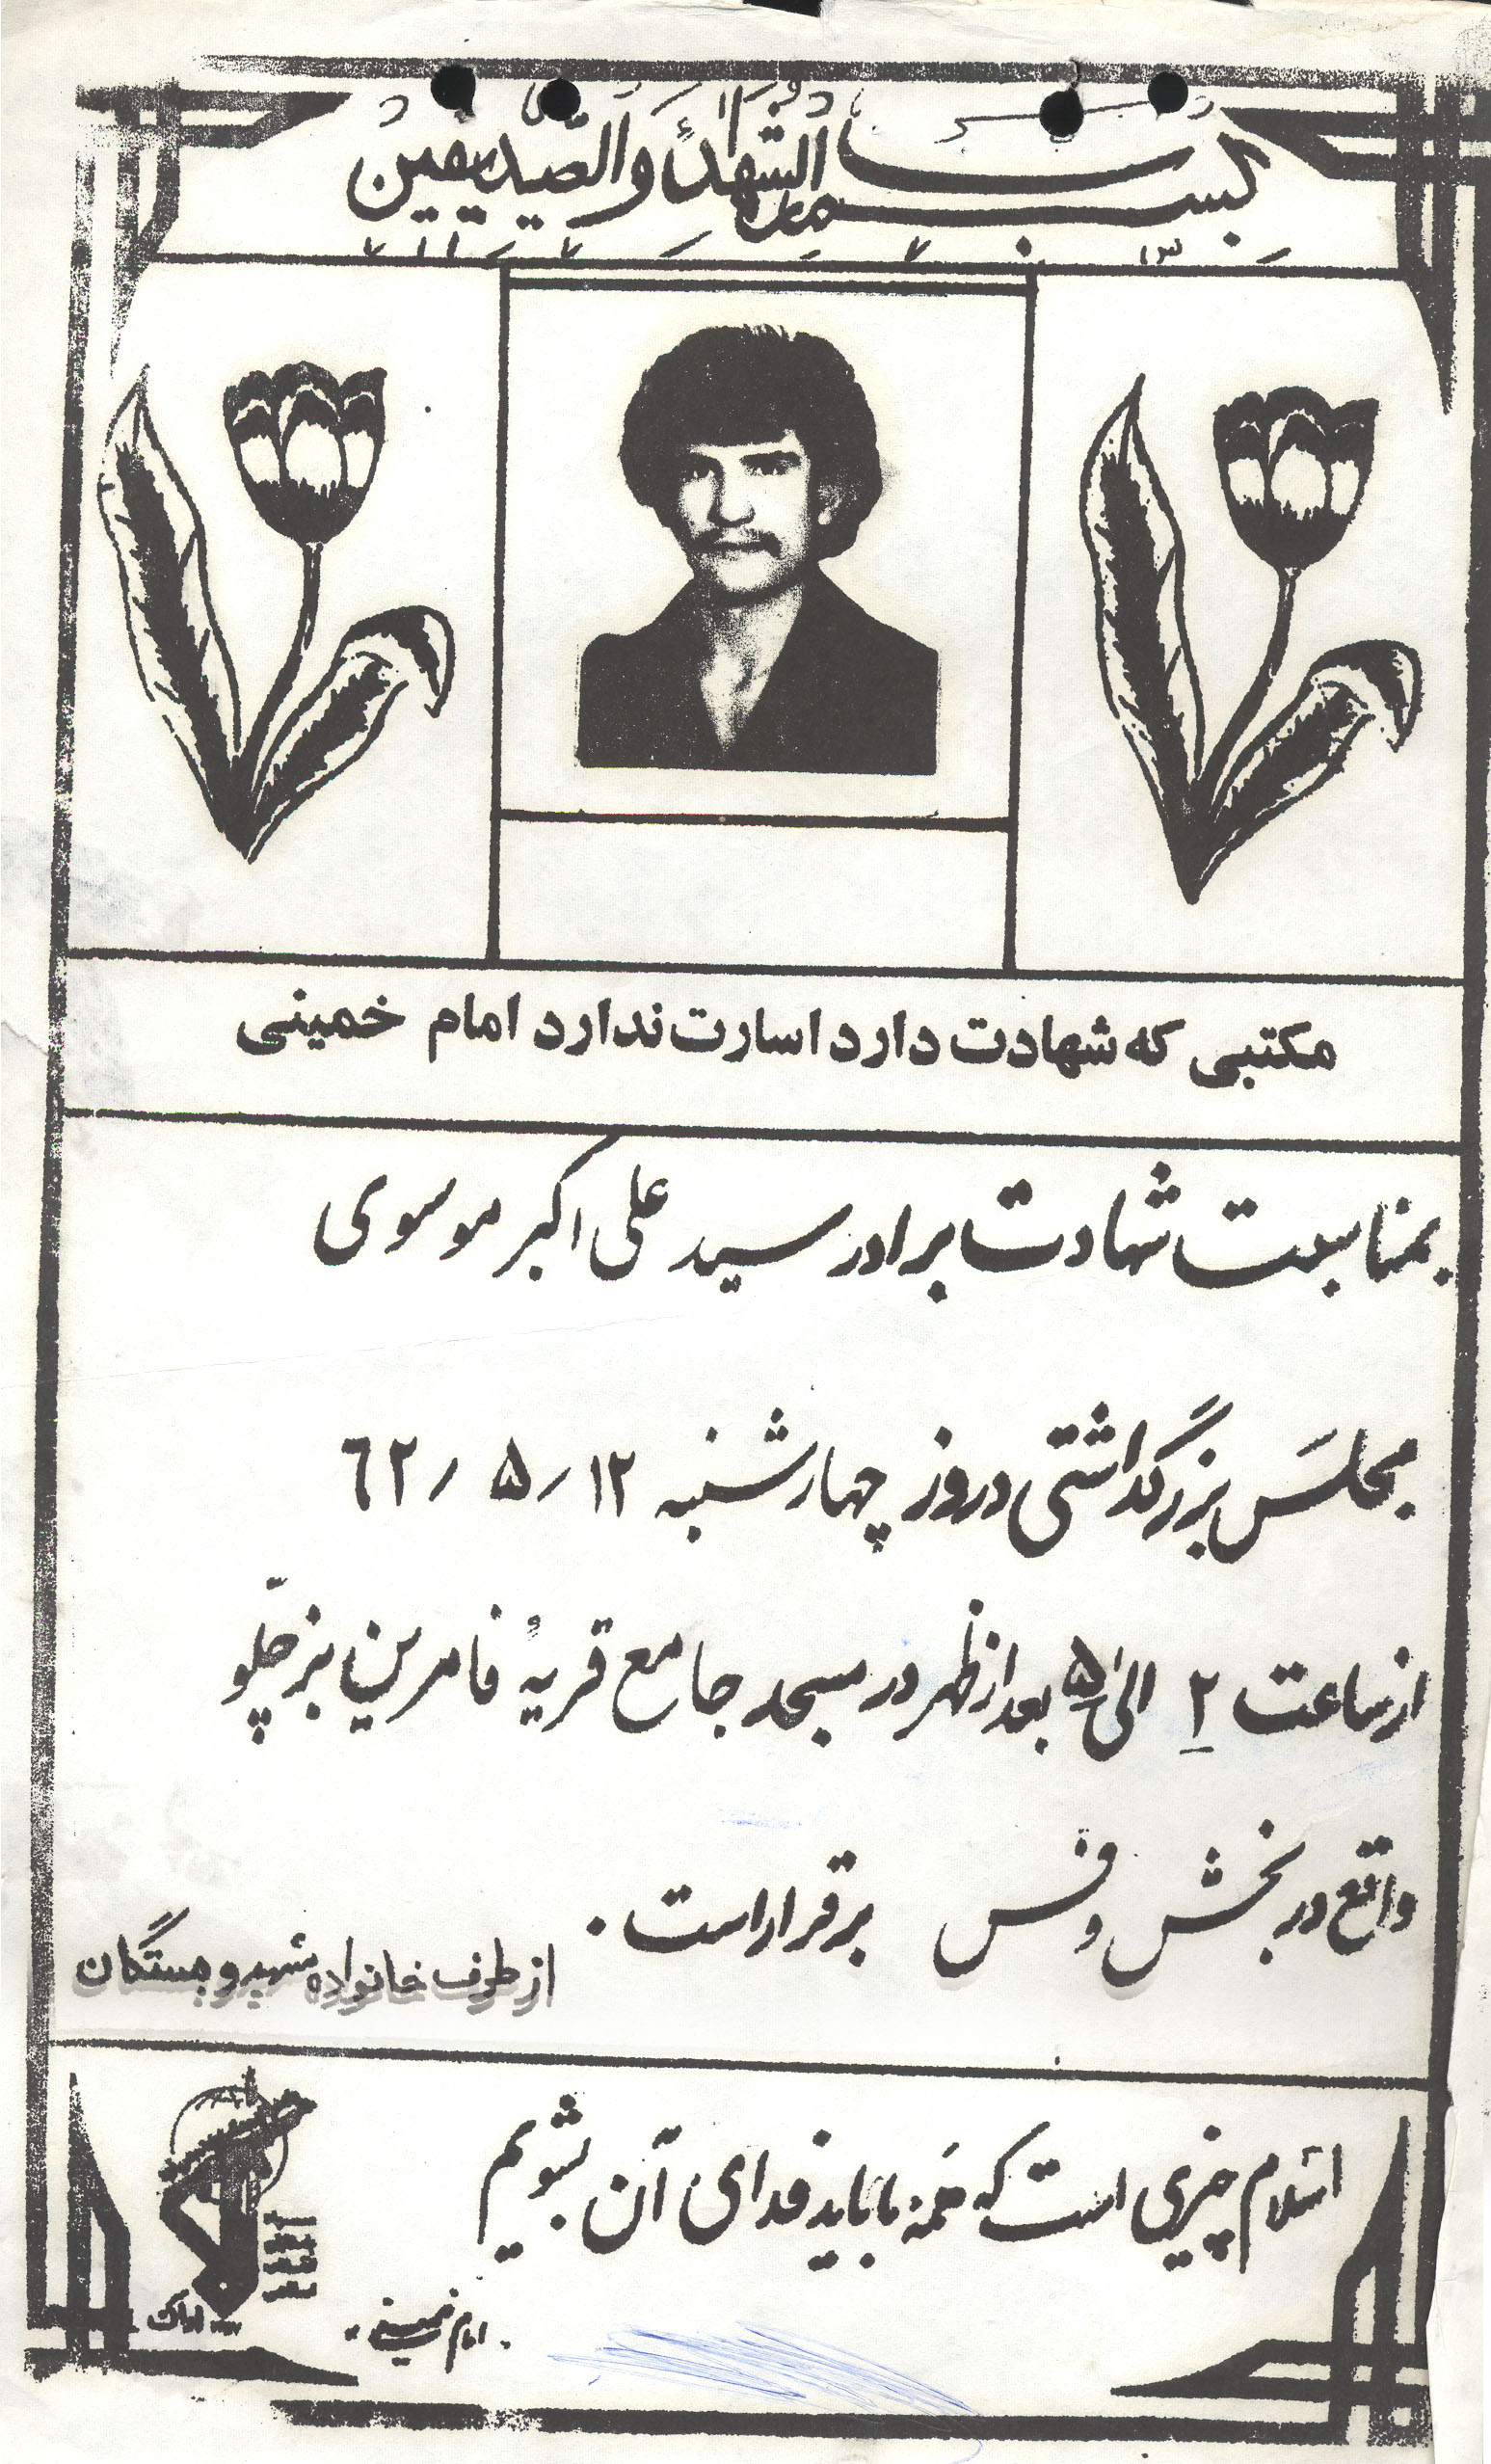 بِسْمِ رَبِّ الشُّهَداءِ وَالصِّدّیقین
مکتبی که شهادت دارد اسارت ندارد امام خمینی
بمناسبت شهادت برادر سید علی اکبر موسوی
مجلس بزرگداشتی در روز چهارشنبه ۱۲/ ۵ /۶۲
از ساعت ۲ الی ۵ بعد از ظهر در مسجد جامع قریهٔ فامرین بزچلّو
واقع در بخش وفس برقرار است .
از طرف خانواده شهید و بستگان
اسلام چیزی است که همهٔ ما باید فدای آن بشویم
امام خمینی
اراک